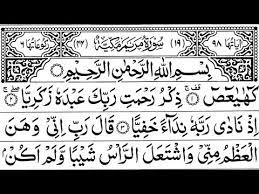 اٰیَاتُهَا ۹۸ (۱۹) سُوْرَةُ مَرْیَمَ مَكِّیَّةٌ (۴۴) رُكُوْعَاتُهَا ۶
بِسْمِ اللّٰهِ الرَّحْمٰنِ الرَّحِیْمِ
كٓهٰیٰعٓصٓ ۱ ذِكْرُ رَحْمَتِ رَبِّكَ عَبْدَهٗ زَكَرِیَّا ۲
اِذْ نَادٰی رَبَّهٗ نِدَآءً خَفِیًّا ۳ قَالَ رَبِّ اِنِّیْ وَهَنَ
الْعَظْمُ مِنِّیْ وَاشْتَعَلَ الرَّاْسُ شَیْبًا وَّلَمْ اَكُنْۢ